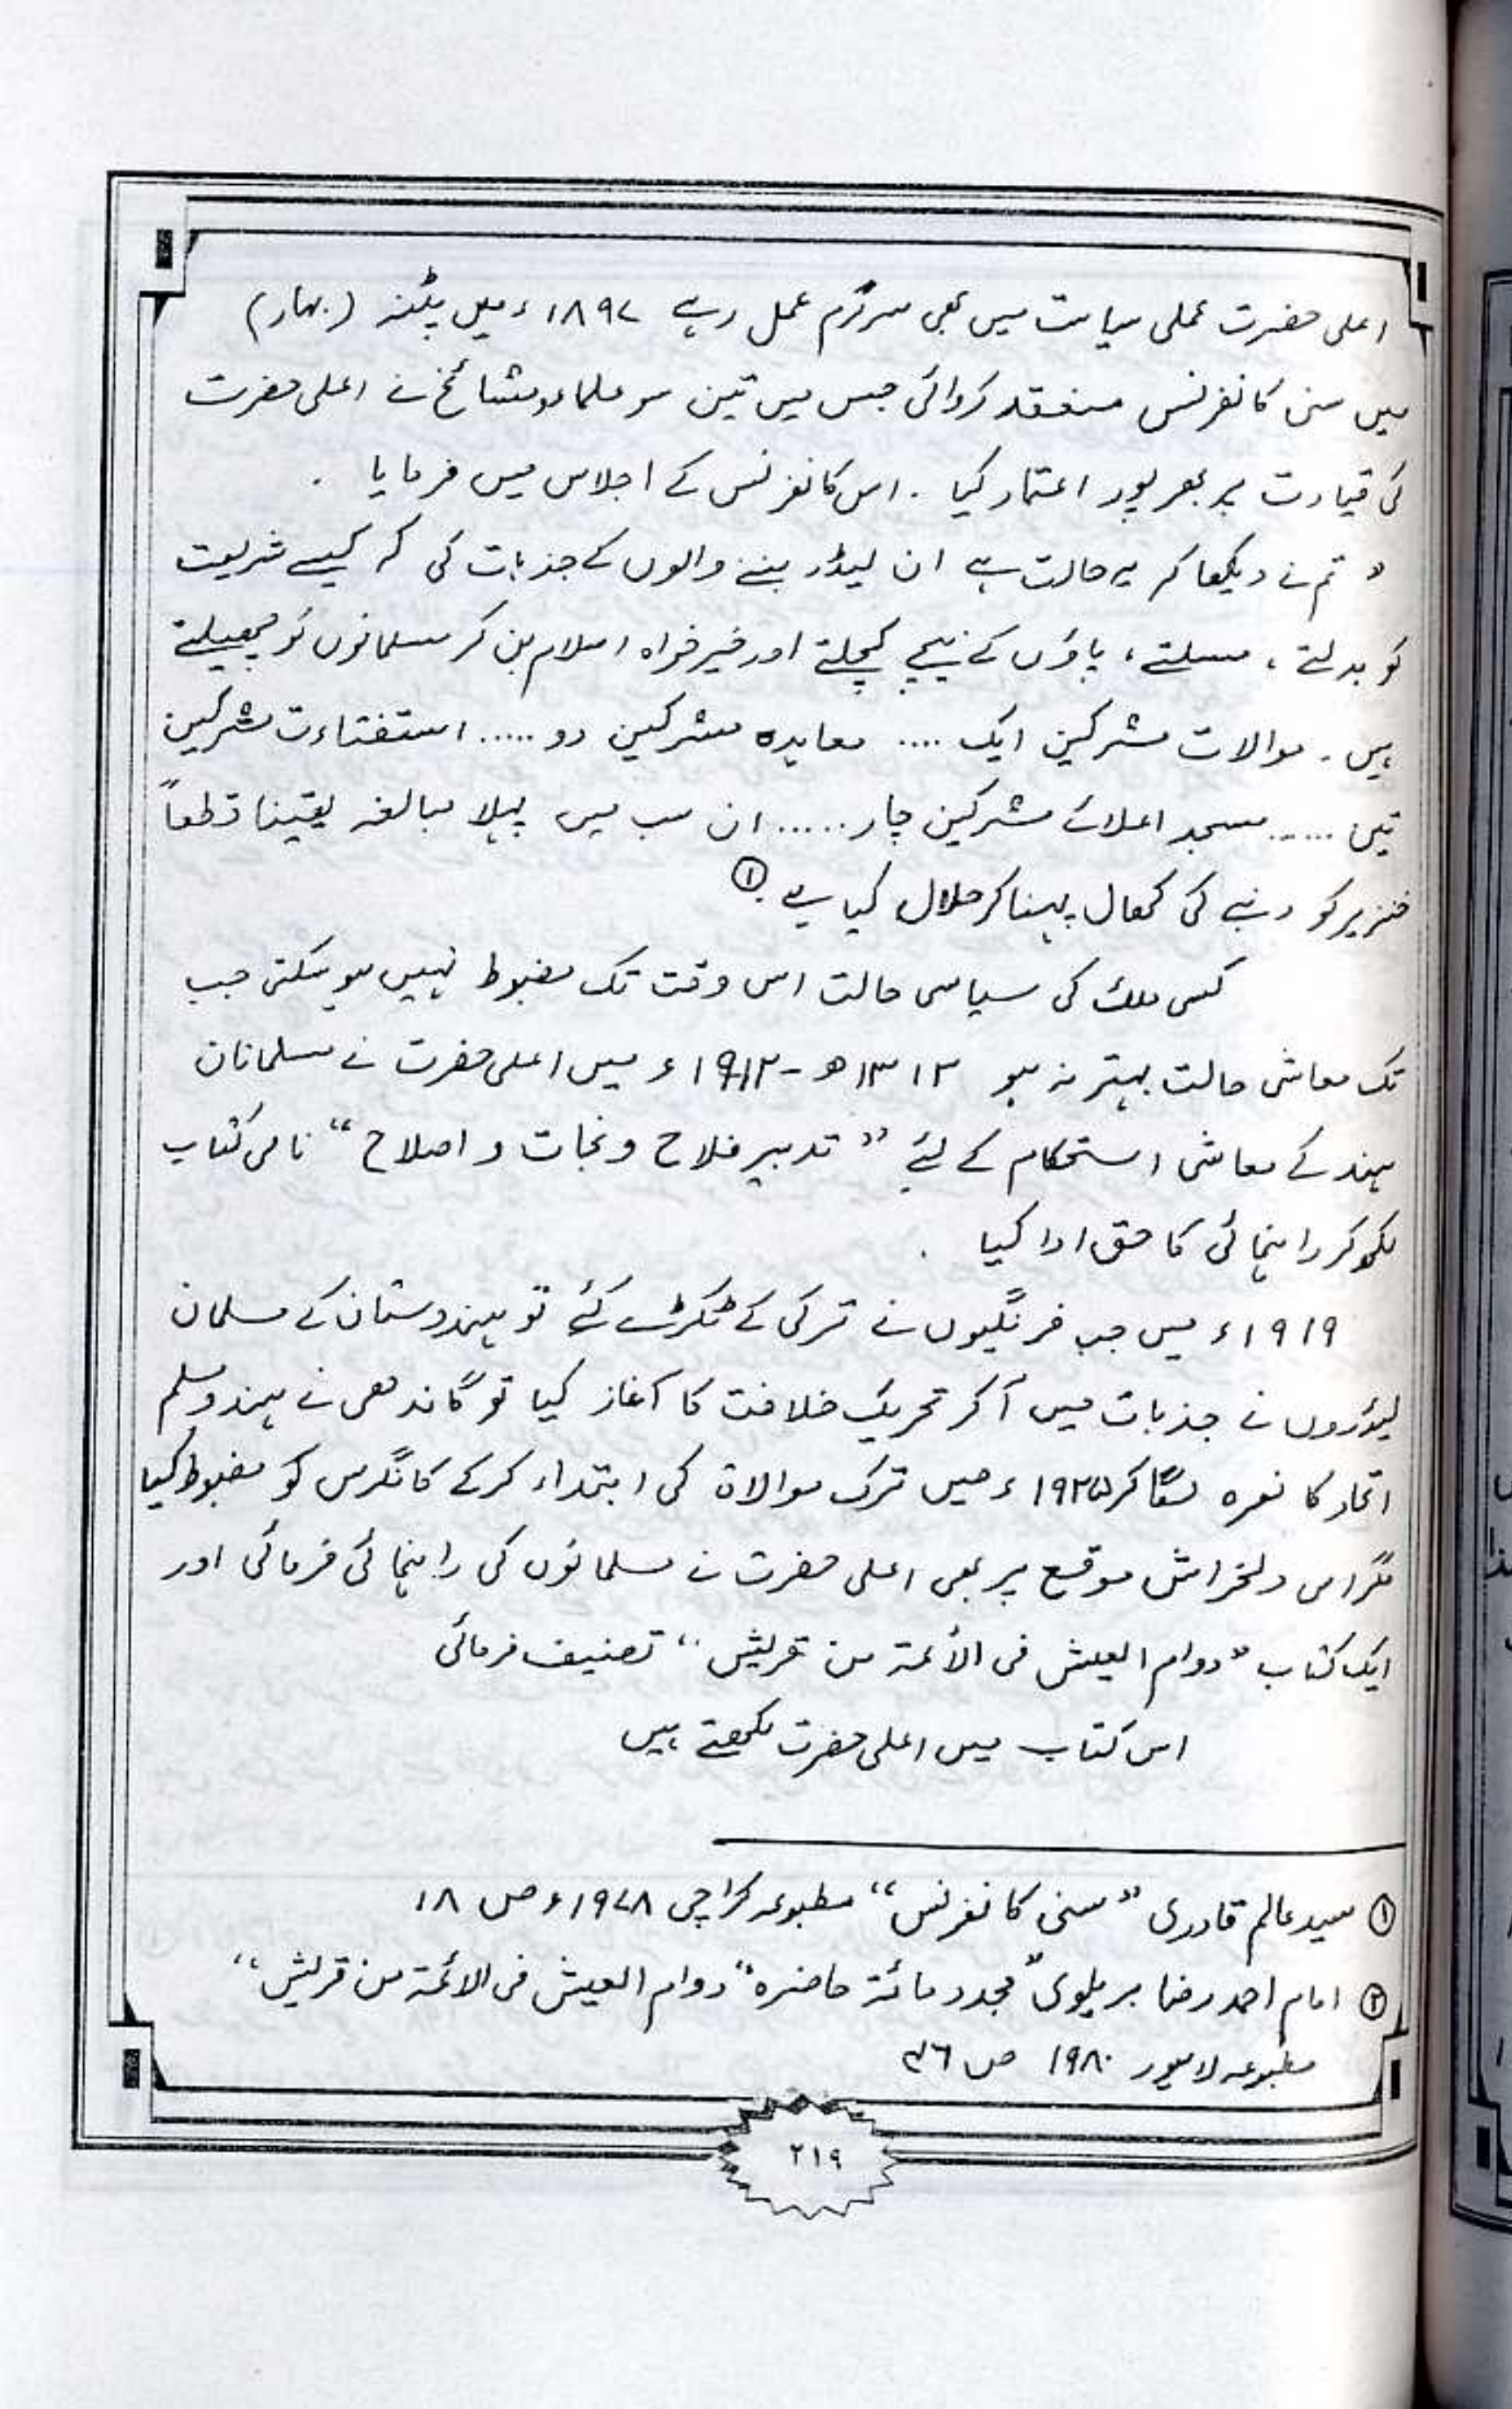 اعلی حضرت عملی سیاست میں بھی سرگرم عمل رہے ۱۸۹۷ء میں پٹنہ (بہار)
میں سنی کانفرنس منعقد کروائی جس میں تین سو علماء و مشائخ نے اعلی حضرت
کی قیادت پر بھر پور اعتماد کیا . اس کانفرنس کے اجلاس میں فرمایا .
" تم نے دیکھا کہ یہ حالت ہے ان لیڈر بننے والوں کے جذبات کی کہ کیسے شریعت
کو بدلتے ، مسلتے ، پاؤں کے نیچے کچلتے اور خیر خواہ اسلام بن کر مسلمانوں کو
ہیں . موالات مشرکین ایک .... معاہدہ مشرکین دو ..... مشرکین
تین ...... مسجد اعلائے مشرکین چار ...... ان سب میں پہلا مبالغہ یقینا قطعاً
خنزیر کو دنبے کی کھال پہنا کر حلال کیا ہے . ①
کسی ملک کی سیاسی حالت اس وقت تک مضبوط نہیں ہو سکتی جب
تک معاشی حالت بہتر نہ ہو ۱۳۱۲ھ - ۱۹۱۲ء میں اعلی حضرت نے مسلمانان
ہند کے معاشی استحکام کے لئے " تدبیر فلاح و نجات و اصلاح " نامی کتاب
لکھ کر راہنمائی کا حق ادا کیا .
۱۹۱۹ء میں جب فرنگیوں نے ترکی کے ٹکڑے کئے تو ہندوستان کے مسلمان
لیڈروں نے جذبات میں آ کر تحریک خلافت کا آغاز کیا تو گاندھی نے ہندو مسلم
اتحاد کا نعرہ لگا کر ۱۹۲۵ء میں ترک موالاۃ کی ابتداء کر کے کانگرس کو مضبوط کیا
مگر اس دلخراش موقع پر بھی اعلی حضرت نے مسلمانوں کی راہنمائی فرمائی اور
ایک کتاب " دوام العیش فی الأئمۃ من قریش " تصنیف فرمائی
اس کتاب میں اعلی حضرت لکھتے ہیں
① سید عالم قادری " سنی کانفرنس " مطبوعہ کراچی ۱۹۷۸ء ص ۱۸
② امام احمد رضا بریلوی " مجدد مائۃ حاضرہ " دوام العیش فی الائمۃ من قریش "
مطبوعہ لاہور ۱۹۸۰ ص ۴۶
۲۱۹